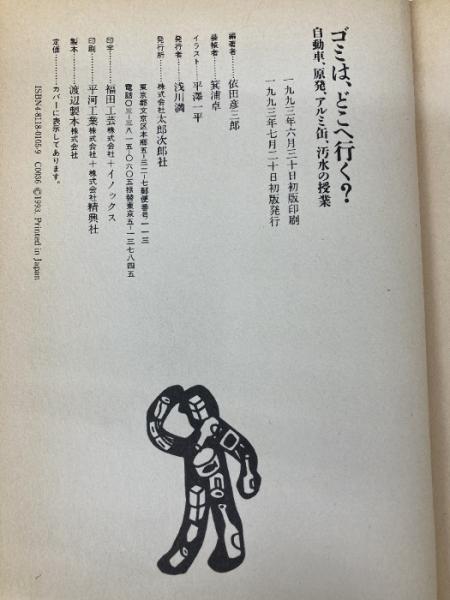 ゴミは、どこへ行く?
自動車、原発、アルミ缶、汚水の授業
一九九三年六月三十日初版印刷
一九九三年七月二十日初版発行
編著者 依田彦三郎
装幀者 箕浦卓
イラスト 平澤一平
発行者 浅川満
発行所 株式会社太郎次郎社
東京都文京区本郷五-三二-七郵便番号一一三
電話〇三-三八一五-〇六〇五振替東京五-一三七八四五
印字 福田工芸株式会社+イノックス
印刷 平河工業株式会社+株式会社精興社
製本 渡辺製本株式会社
定価 カバーに表示してあります。
ISBN4-8118-0105-9 C0036 ©1993, Printed in Japan